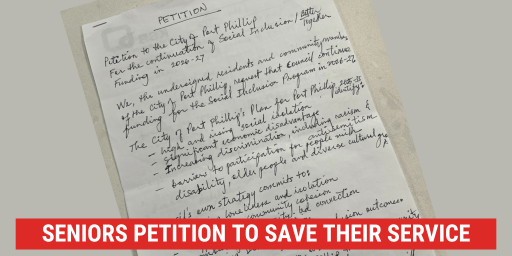 PETITION
Petition to the City of Port Phillip
For the continuation of Social Inclusion / Better Together
Funding in 2026-27
We, the undersigned residents and community members
of the City of Port Phillip request that Council continue
funding for the Social Inclusion Program in 2026-27
The City of Port Phillip's Plan for Port Phillip identifies
- high and rising social isolation
- significant economic disadvantage
- Increasing discrimination, including racism &
antisemitism
- barriers to participation for people with
disability, older people and diverse cultural
own strategy commits to:
loneliness and isolation
community cohesion
connection
inclusion outcomes
SENIORS PETITION TO SAVE THEIR SERVICE